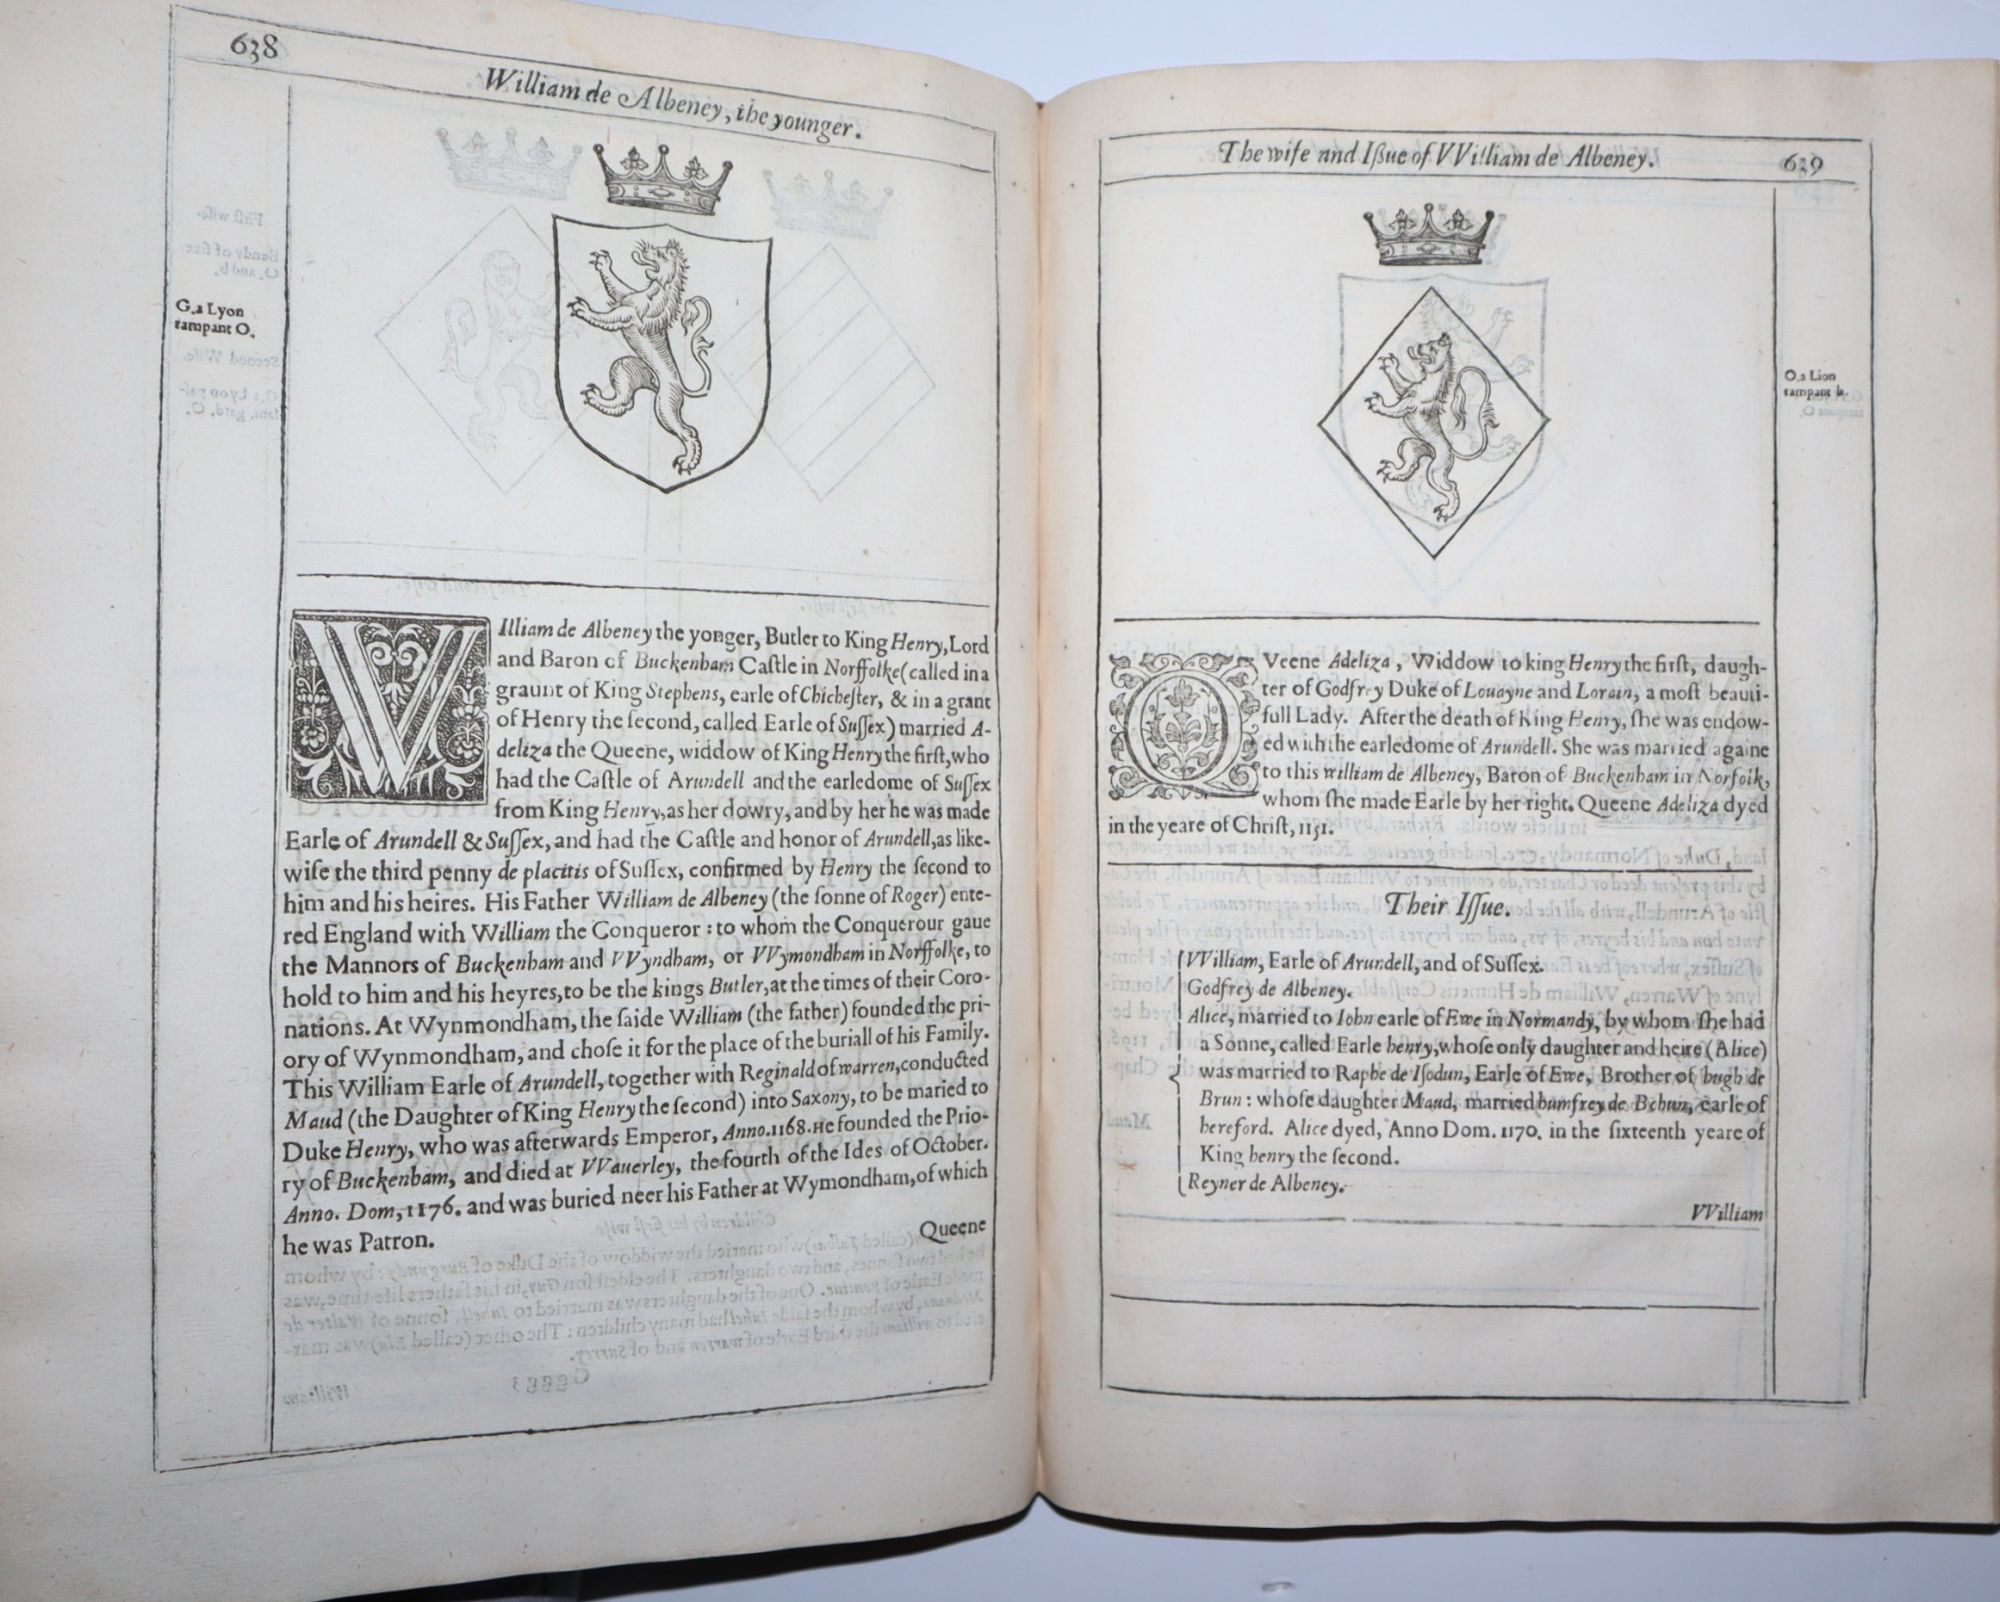 638
William de Albeney, the younger.
G. a Lyon
rampant O.
VVIlliam de Albeney the yonger, Butler to King Henry, Lord
and Baron of Buckenham Caſtle in Norffolke (called in a
graunt of King Stephens, earle of Chicheſter, & in a grant
of Henry the ſecond, called Earle of Suſſex) married A-
deliza the Queene, widdow of King Henry the firſt, who
had the Caſtle of Arundell and the earledome of Suſſex
from King Henry, as her dowry, and by her he was made
Earle of Arundell & Suſſex, and had the Caſtle and honor of Arundell, as like-
wiſe the third penny de placitis of Suſſex, confirmed by Henry the ſecond to
him and his heires. His Father William de Albeney (the ſonne of Roger) ente-
red England with William the Conqueror : to whom the Conquerour gaue
the Mannors of Buckenham and VVyndham, or VVymondham in Norffolke, to
hold to him and his heyres, to be the kings Butler, at the times of their Coro-
nations. At Wynmondham, the ſaide William (the father) founded the pri-
ory of Wynmondham, and choſe it for the place of the buriall of his Family.
This William Earle of Arundell, together with Reginald of warren, conducted
Maud (the Daughter of King Henry the ſecond) into Saxony, to be maried to
Duke Henry, who was afterwards Emperor, Anno. 1168. He founded the Prio-
ry of Buckenham, and died at VVauerley, the fourth of the Ides of October.
Anno. Dom, 1176. and was buried neer his Father at Wymondham, of which
he was Patron.
Queene
The wife and Iſſue of VVilliam de Albeney.
639
O. a Lion
rampant b.
QVeene Adeliza, Widdow to king Henry the firſt, daugh-
ter of Godfrey Duke of Louayne and Lorain, a moſt beauti-
full Lady. After the death of King Henry, ſhe was endow-
ed with the earledome of Arundell. She was married againe
to this william de Albeney, Baron of Buckenham in Norfolk,
whom ſhe made Earle by her right. Queene Adeliza dyed
in the yeare of Chriſt, 1151.
Their Iſſue.
VVilliam, Earle of Arundell, and of Suſſex.
Godfrey de Albeney.
Alice, married to Iohn earle of Ewe in Normandy, by whom ſhe had
a Sonne, called Earle henry, whoſe only daughter and heire (Alice)
was married to Raphe de Iſodun, Earle of Ewe, Brother of hugh de
Brun : whoſe daughter Maud, married humfrey de Bohun, earle of
hereford. Alice dyed, Anno Dom. 1170. in the ſixteenth yeare of
King henry the ſecond.
Reyner de Albeney.
VVilliam